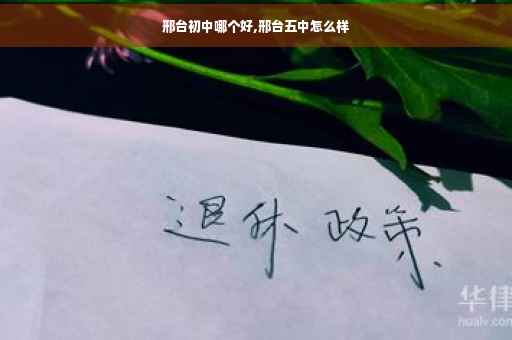 邢台初中哪个好,邢台五中怎么样
退休 政策
华律
hualv.com